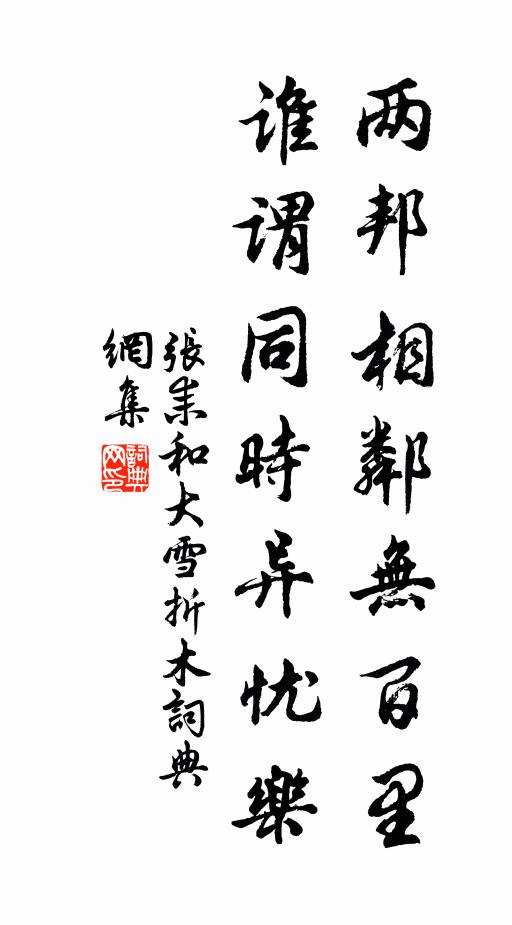 两邦相鄰無百里
誰謂同時异忧樂
張耒和大雪折木詞典
網集
詞典
网印